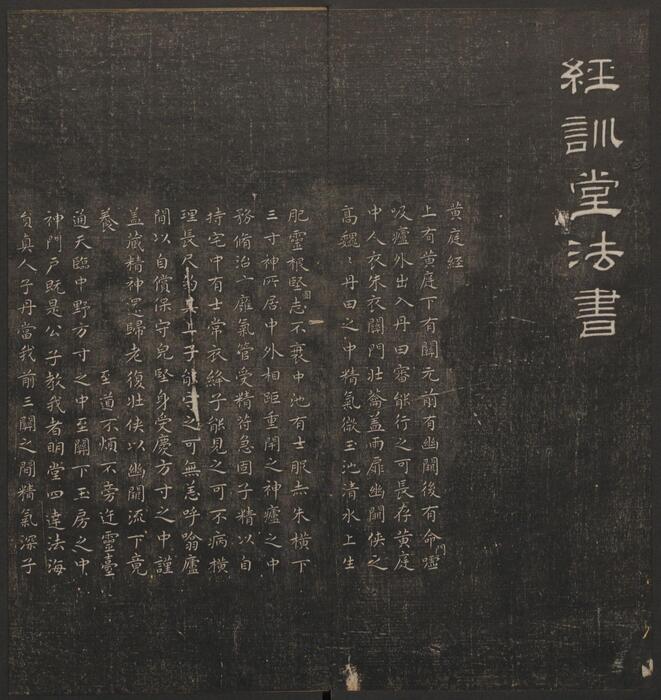 經訓堂法書
黃庭經
上有黃庭下有關元前有幽關後有命門噓
吸廬外出入丹田審能行之可長存黃庭
中人衣朱衣關門壯籥蓋兩扉幽關俠之
高魏〻丹田之中精氣微玉池清水上生
肥靈根堅固志不衰中池有士服赤朱橫下
三寸神所居中外相距重閉之神廬之中
務脩治玄廱氣管受精符急固子精以自
持宅中有士常衣絳子能見之可不病橫
理長尺約其上子能守之可無恙呼噏廬
間以自償保守皃堅身受慶方寸之中謹
蓋藏精神還歸老復壯俠以幽闕流下竟
養 至道不煩不旁迕靈臺
通天臨中野方寸之中至關下玉房之中
神門戶既是公子教我者明堂四達法海
員真人子丹當我前三關之間精氣深子